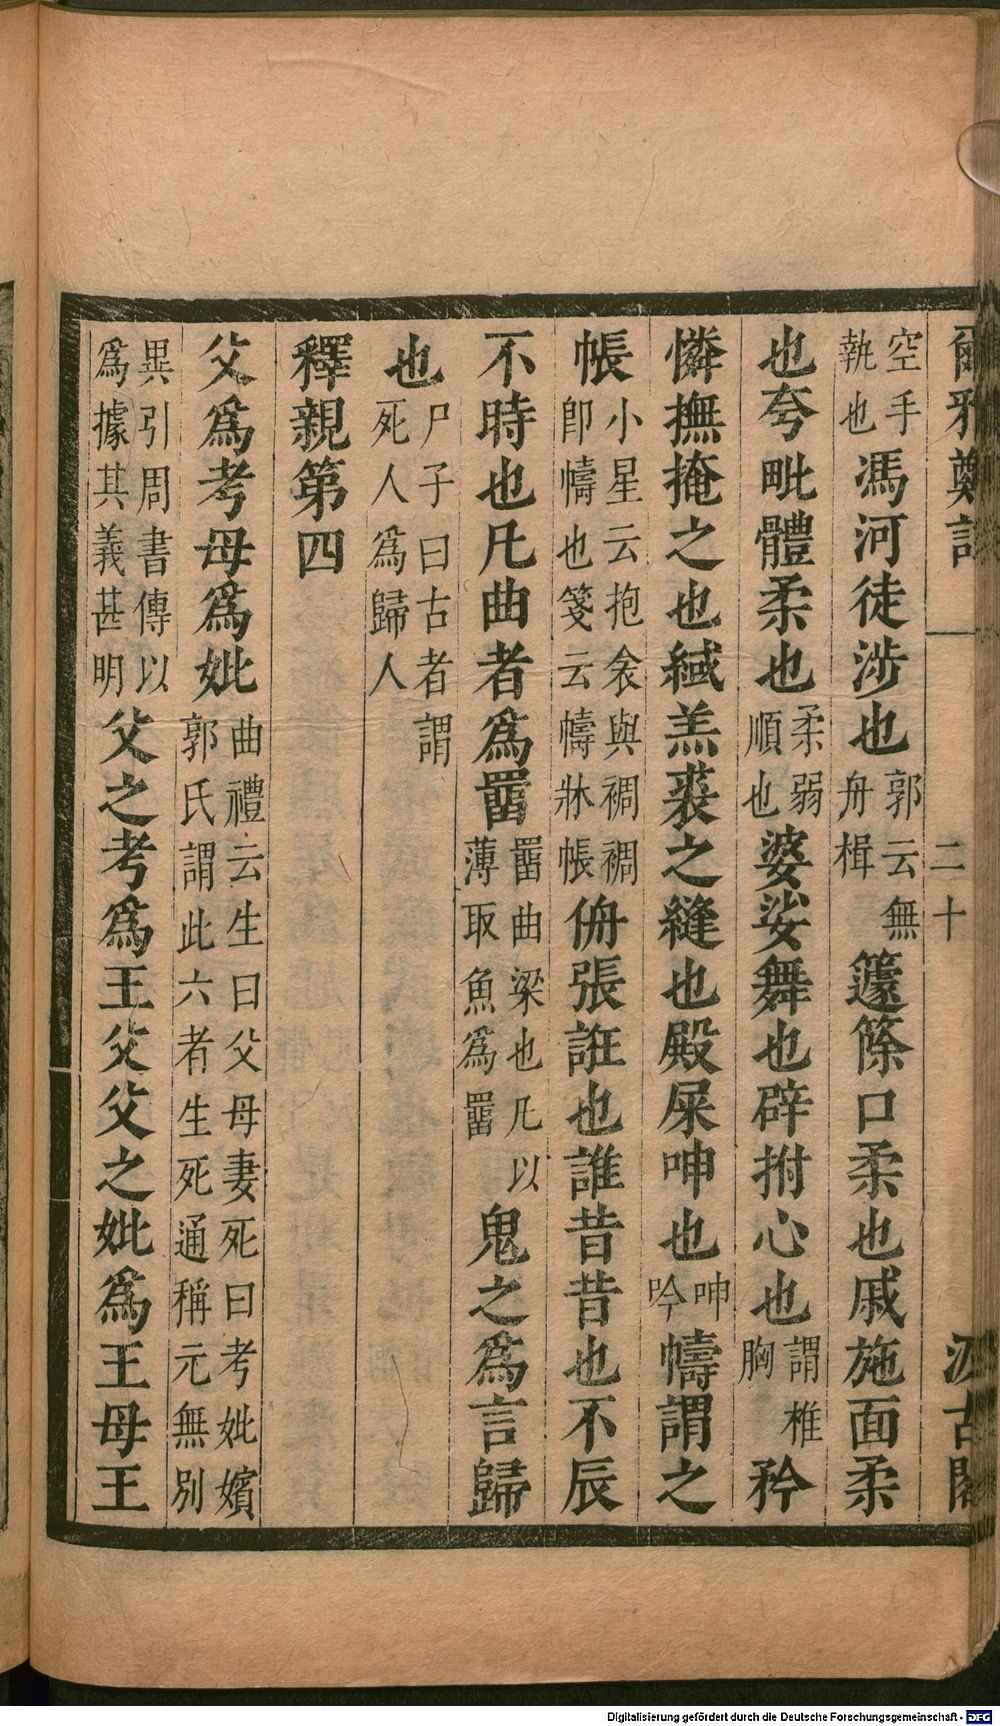 爾雅鄭註 二十 汲古閣
空手執也馮河徒涉也郭云無舟楫籧篨口柔也戚施面柔
也夸毗體柔也柔弱順也婆娑舞也辟拊心也謂椎胸矜
憐撫掩之也緎羔裘之縫也殿屎呻也呻吟幬謂之
帳小星云抱衾與裯裯即幬也箋云幬牀帳侜張誑也誰昔昔也不辰
不時也凡曲者為罶罶曲梁也凡以薄取魚為罶鬼之為言歸
也尸子曰古者謂死人為歸人
釋親第四
父為考母為妣曲禮云生曰父母妻死曰考妣嬪郭氏謂此六者生死通稱元無別
異引周書傳以為據其義甚明父之考為王父父之妣為王母王
Digitalisierung gefördert durch die Deutsche Forschungsgemeinschaft - DFG